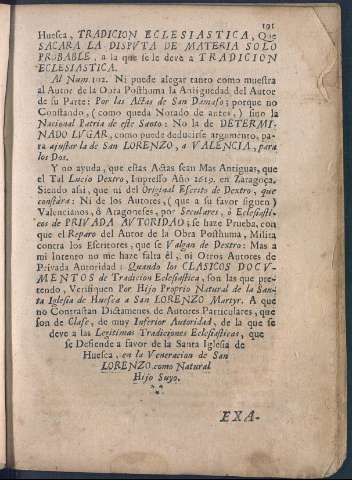 191
Huesca, TRADICION ECLESIASTICA, Que
SACARA LA DISPVTA DE MATERIA SOLO
PROBABLE, a la que se le deve a TRADICION
ECLESIASTICA.
Al Num. 102. Ni puede alegar tanto como muestra
al Autor de la Obra Posthuma la Antiguedad del Autor
de su Parte: Por las Actas de San Damaso; porque no
Constando, (como queda Notado de antes,) sino la
Nacional Patria de este Santo: No la de DETERMI-
NADO LVGAR, como puede deducirse argumento, pa-
ra ajustar la de San LORENZO, a VALENCIA, para
los Dos.
Y no ayuda, que estas Actas sean Mas Antiguas, que
el Tal Lucio Dextro, Impresso Año 1619. en Zaragoça.
Siendo assi, que ni del Original Escrito de Dextro, que
constàra: Ni de los Autores, (que a su favor siguen)
Valencianos, ò Aragoneses, por Seculares, ò Eclesiasti-
cos de PRIVADA AVTORIDAD; se haze Prueba, con
que el Reparo del Autor de la Obra Posthuma, Milita
contra los Escritores, que se Valgan de Dextro: Mas a
mi Intento no me haze falta èl, ni Otros Autores de
Privada Autoridad: Quando los CLASICOS DOCV-
MENTOS de Tradicion Eclesiastica, son las que pre-
tendo, Verifiquen Por Hijo Proprio Natural de la San-
ta Iglesia de Huesca a San LORENZO Martyr. A que
no Contrastan Dictamenes de Autores Particulares, que
son de Clase, de muy Inferior Autoridad, de la que se
deve a las Legitimas Tradiciones Eclesiasticas, que
se Defiende a favor de la Santa Iglesia de
Huesca, en la Veneracion de San
LORENZO, como Natural
Hijo Suyo.
EXA-